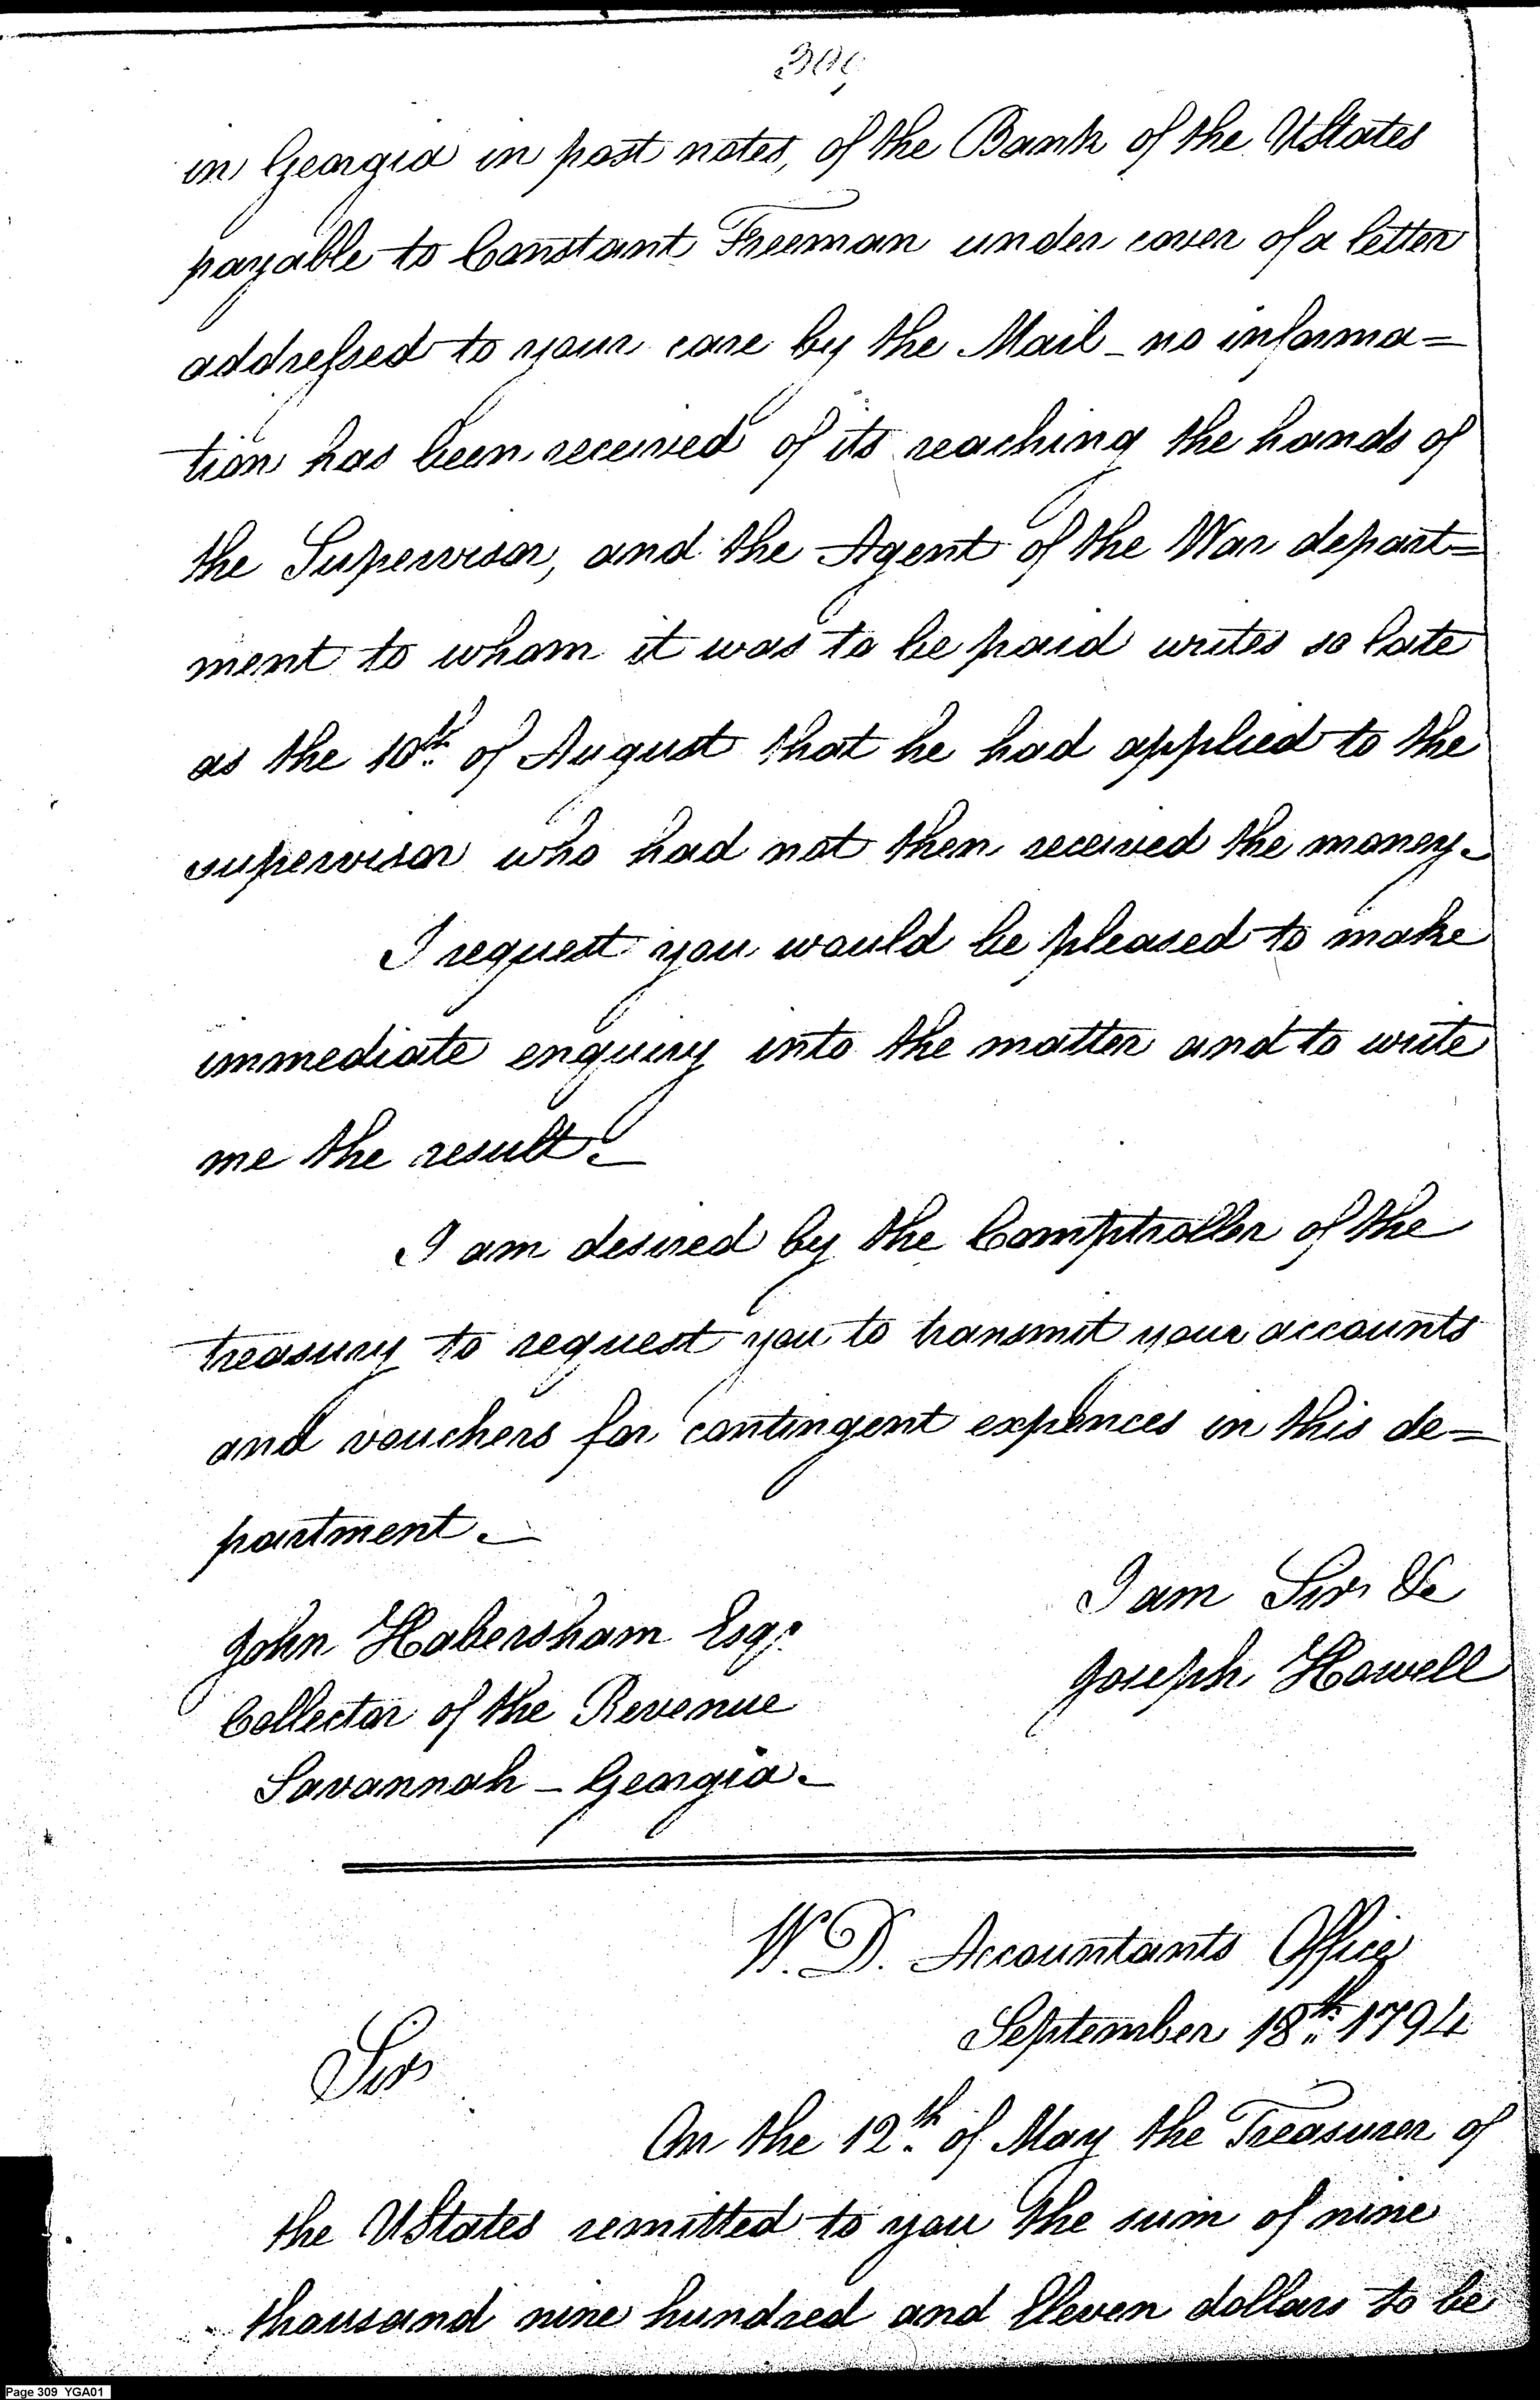 309
in Georgia in post notes, of the Bank of the UStates
payable to Constant Freeman under cover of a letter
addressed to your care by the Mail _ no informa=
tion has been received of its reaching the hands of
the Supervisor, and the Agent of the War depart=
ment to whom it was to be paid writes so late
as the 10th of August that he had applied to the
supervisor who had not then received the money._
I request you would be pleased to make
immediate enquiry into the matter and to write
me the result._
I am desired by the Comptroller of the
treasury to request you to transmit your accounts
and vouchers for contingent expences in this de=
partment._
I am Sir &c
John Habersham Esqr
Joseph Howell
Collector of the Revenue
Savannah _ Georgia._
W. D. Accountants Office
September 18th 1794
Sir
On the 12th of May the Treasurer of
the UStates remitted to you the sum of nine
thousand nine hundred and Eleven dollars to be
Page 309 YGA01